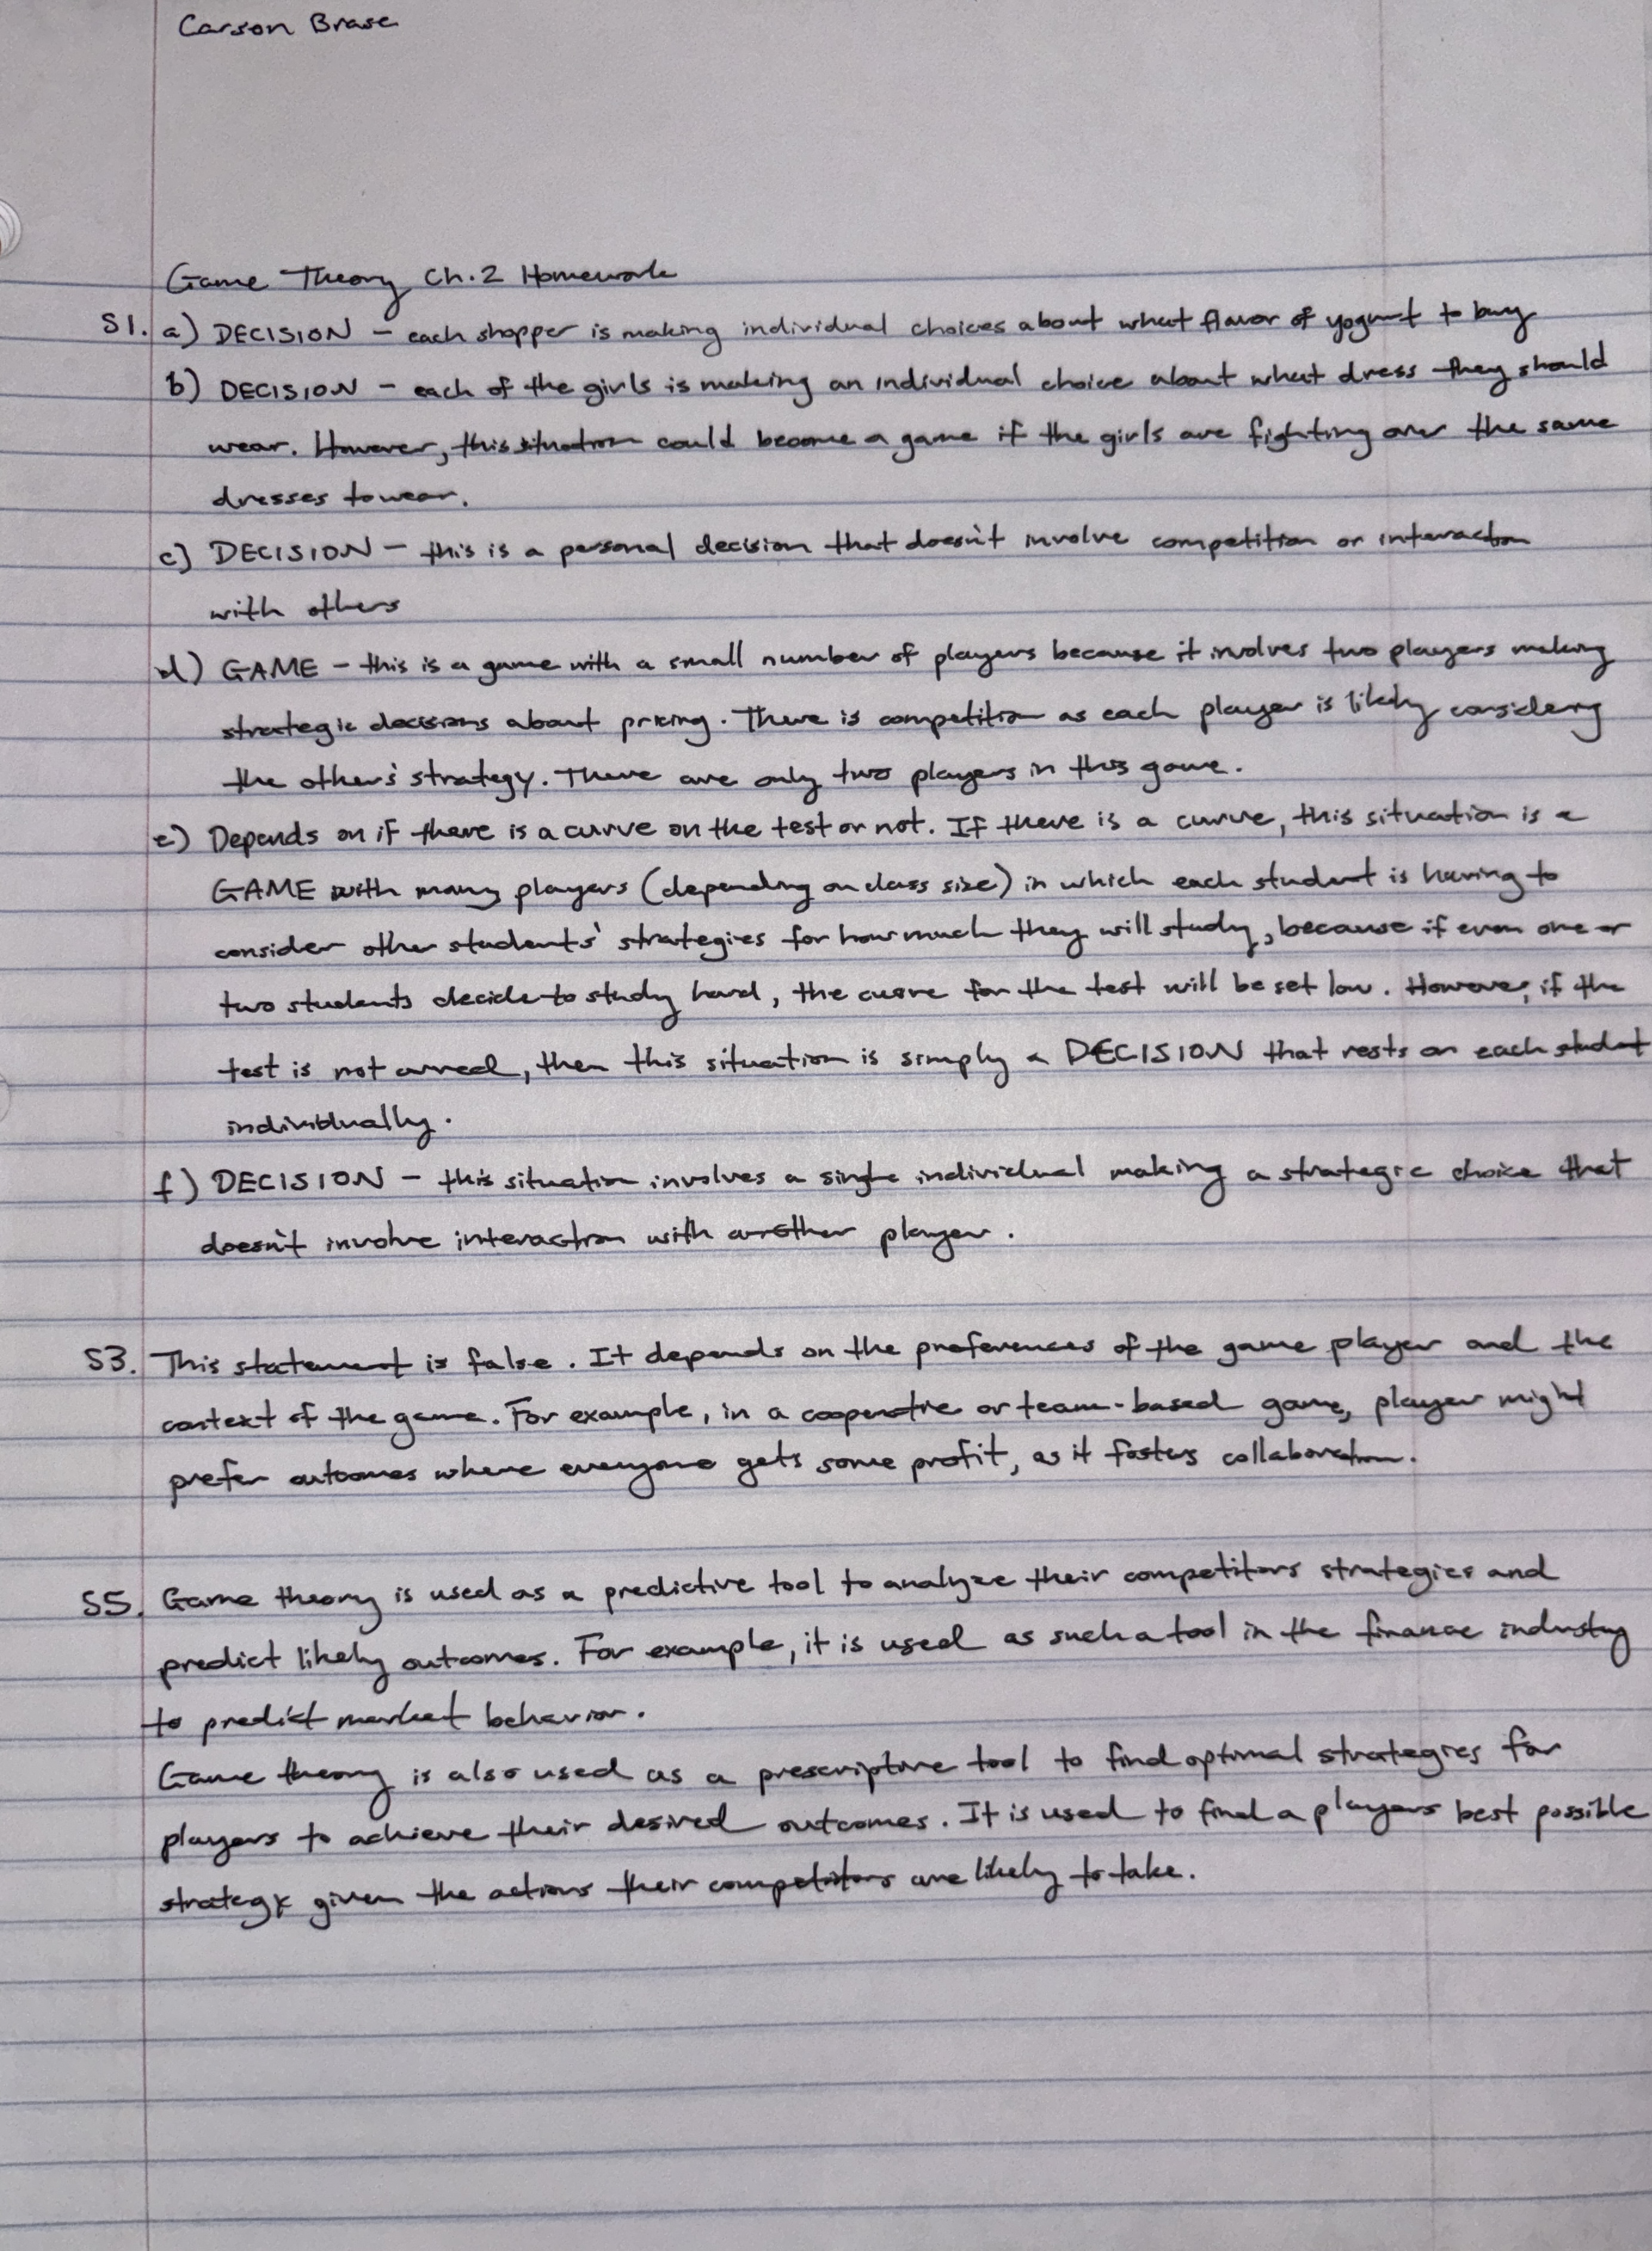 Carson Brase
Game Theory Ch.2 Homework
S1. a) DECISION - each shopper is making individual choices about what flavor of yogurt to buy
b) DECISION - each of the girls is making an individual choice about what dress they should
wear. However, this situation could become a game if the girls are fighting over the same
dresses to wear.
c) DECISION - this is a personal decision that doesn't involve competition or interaction
with others
d) GAME - this is a game with a small number of players because it involves two players making
strategic decisions about pricing. There is competition as each player is likely considering
the others' strategy. There are only two players in this game.
e) Depends on if there is a curve on the test or not. If there is a curve, this situation is a
GAME with many players (depending on class size) in which each student is having to
consider other students' strategies for how much they will study, because if even one or
two students decide to study hard, the curve for the test will be set low. However, if the
test is not curved, then this situation is simply a DECISION that rests on each student
individually.
f) DECISION - this situation involves a single individual making a strategic choice that
doesn't involve interaction with another player.
S3. This statement is false. It depends on the preferences of the game player and the
context of the game. For example, in a cooperative or team-based game, player might
prefer outcomes where everyone gets some profit, as it fosters collaboration.
S5. Game theory is used as a predictive tool to analyze their competitors strategies and
predict likely outcomes. For example, it is used as such a tool in the finance industry
to predict market behavior.
Game theory is also used as a prescriptive tool to find optimal strategies for
players to achieve their desired outcomes. It is used to find a players best possible
strategy given the actions their competitors are likely to take.